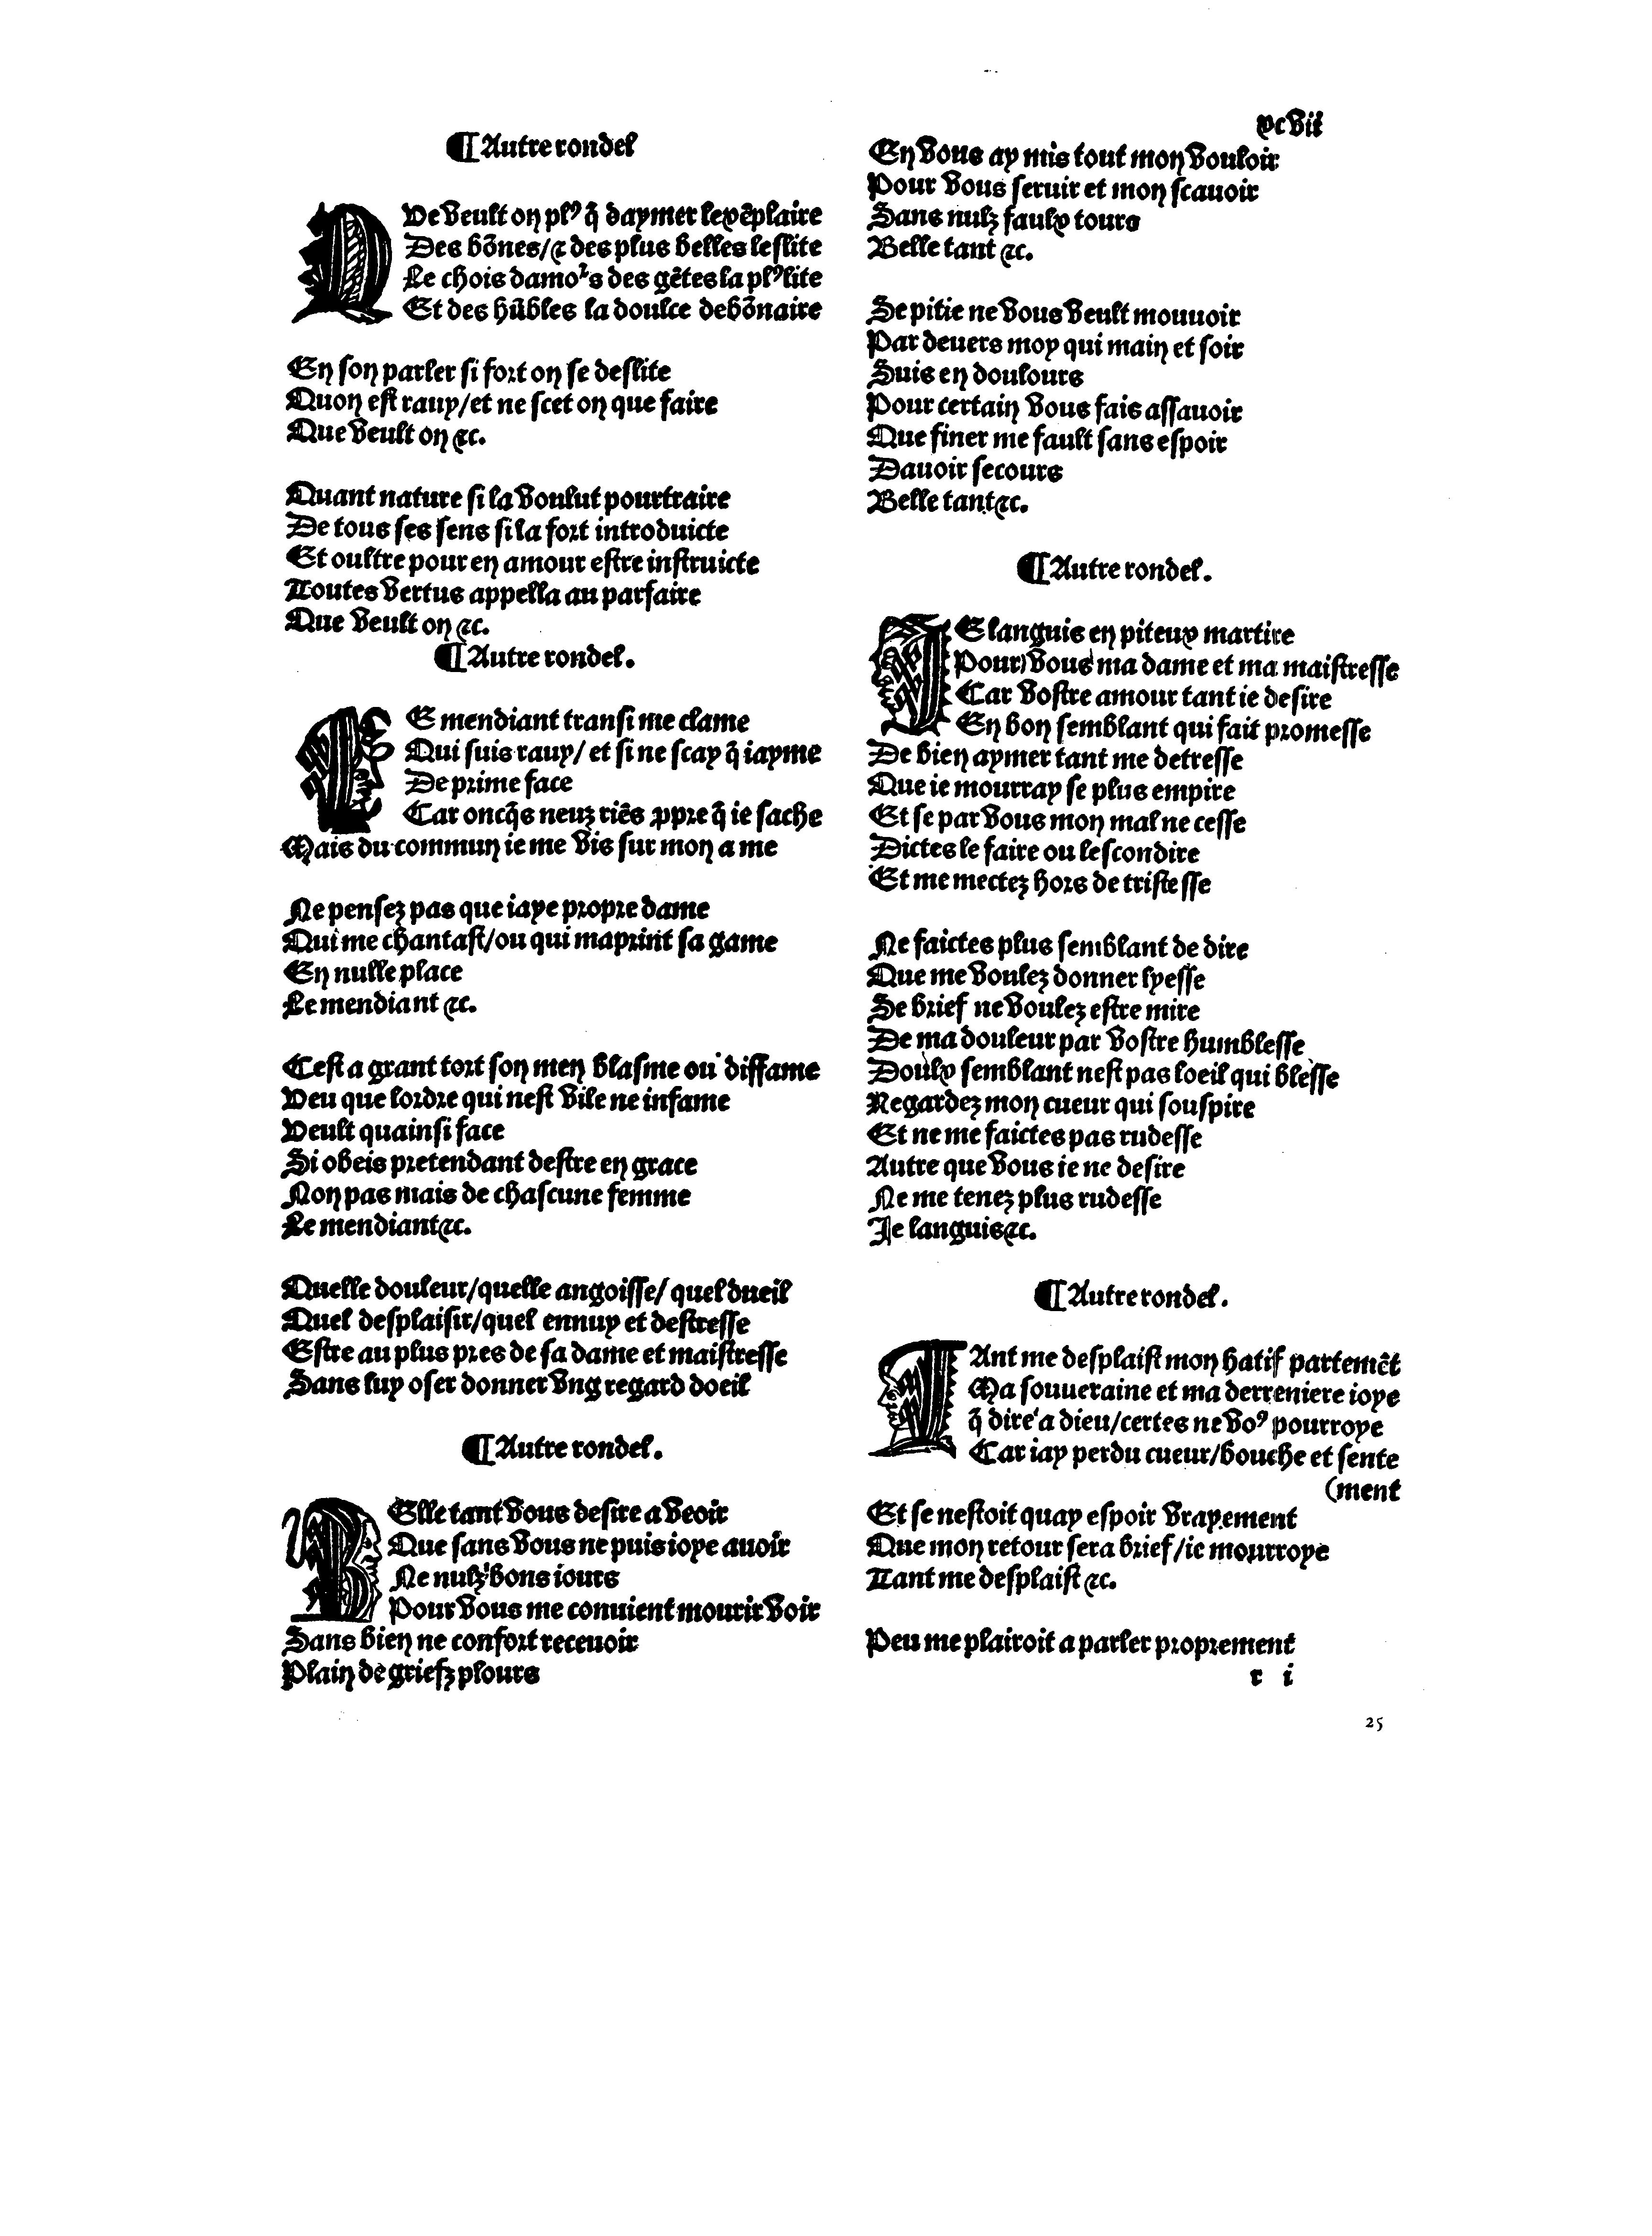 ¶Autre rondel
QVe veult on plꝰ q̃ daymer lexẽplaire
Des bõnes/& des plus belles leslite
Le chois damoʳs des gẽtes la plꝰlite
Et des hũbles la doulce debõnaire
En son parler si fort on se deslite
Quon est rauy/et ne scet on que faire
Que veult on &c.
Quant nature si la voulut pourtraire
De tous ses sens si la fort introduicte
Et oultre pour en amour estre instruicte
Toutes vertus appella au parfaire
Que veult on &c.
¶Autre rondel.
LE mendiant transi me clame
Qui suis rauy/ et si ne scay q̃ iayme
De prime face
Car oncq̃s neuz riẽs ꝓpre q̃ ie sache
Mais du commun ie me vis sur mon a me
Ne pensez pas que iaye propre dame
Qui me chantast/ou qui maprint sa game
En nulle place
Le mendiant &c.
Cest a grant tort son men blasme ou diffame
Veu que lordre qui nest vile ne infame
Veult quainsi face
Si obeis pretendant destre en grace
Non pas mais de chascune femme
Le mendiant&c.
Quelle douleur/quelle angoisse/ quel dueil
Quel desplaisir/quel ennuy et destresse
Estre au plus pres de sa dame et maistresse
Sans luy oser donner vng regard doeil
¶Autre rondel.
BElle tant vous desire a veoir
Que sans vous ne puis ioye auoir
Ne nulz bons iours
Pour vous me conuient mourir voir
Sans bien ne confort receuoir
Plain de griefz plours
xcvii
En vous ay mis tout mon vouloir
Pour vous seruir et mon scauoir
Sans nulz faulx tours
Belle tant &c.
Se pitie ne vous veult mouuoir
Par deuers moy qui main et soir
Suis en doulours
Pour certain vous fais assauoir
Que finer me fault sans espoir
Dauoir secours
Belle tant&c.
¶Autre rondel.
IE languis en piteux martire
Pour vous ma dame et ma maistresse
Car vostre amour tant ie desire
En bon semblant qui fait promesse
De bien aymer tant me detresse
Que ie mourray se plus empire
Et se par vous mon mal ne cesse
Dictes le faire ou lescondire
Et me mectez hors de tristesse
Ne faictes plus semblant de dire
Que me voulez donner lyesse
Se brief ne voulez estre mire
De ma douleur par vostre humblesse
Doulx semblant nest pas loeil qui blesse
Regardez mon cueur qui souspire
Et ne me faictes pas rudesse
Autre que vous ie ne desire
Ne me tenez plus rudesse
Je languis&c.
¶Autre rondel.
TAnt me desplaist mon hatif partemẽt
Ma souueraine et ma derreniere ioye
q̃ dire a dieu/certes ne voꝰ pourroye
Car iay perdu cueur/bouche et sente
(ment
Et se nestoit quay espoir vrayement
Que mon retour sera brief/ie mourroye
Tant me desplaist &c.
Peu me plairoit a parler proprement
r i
25